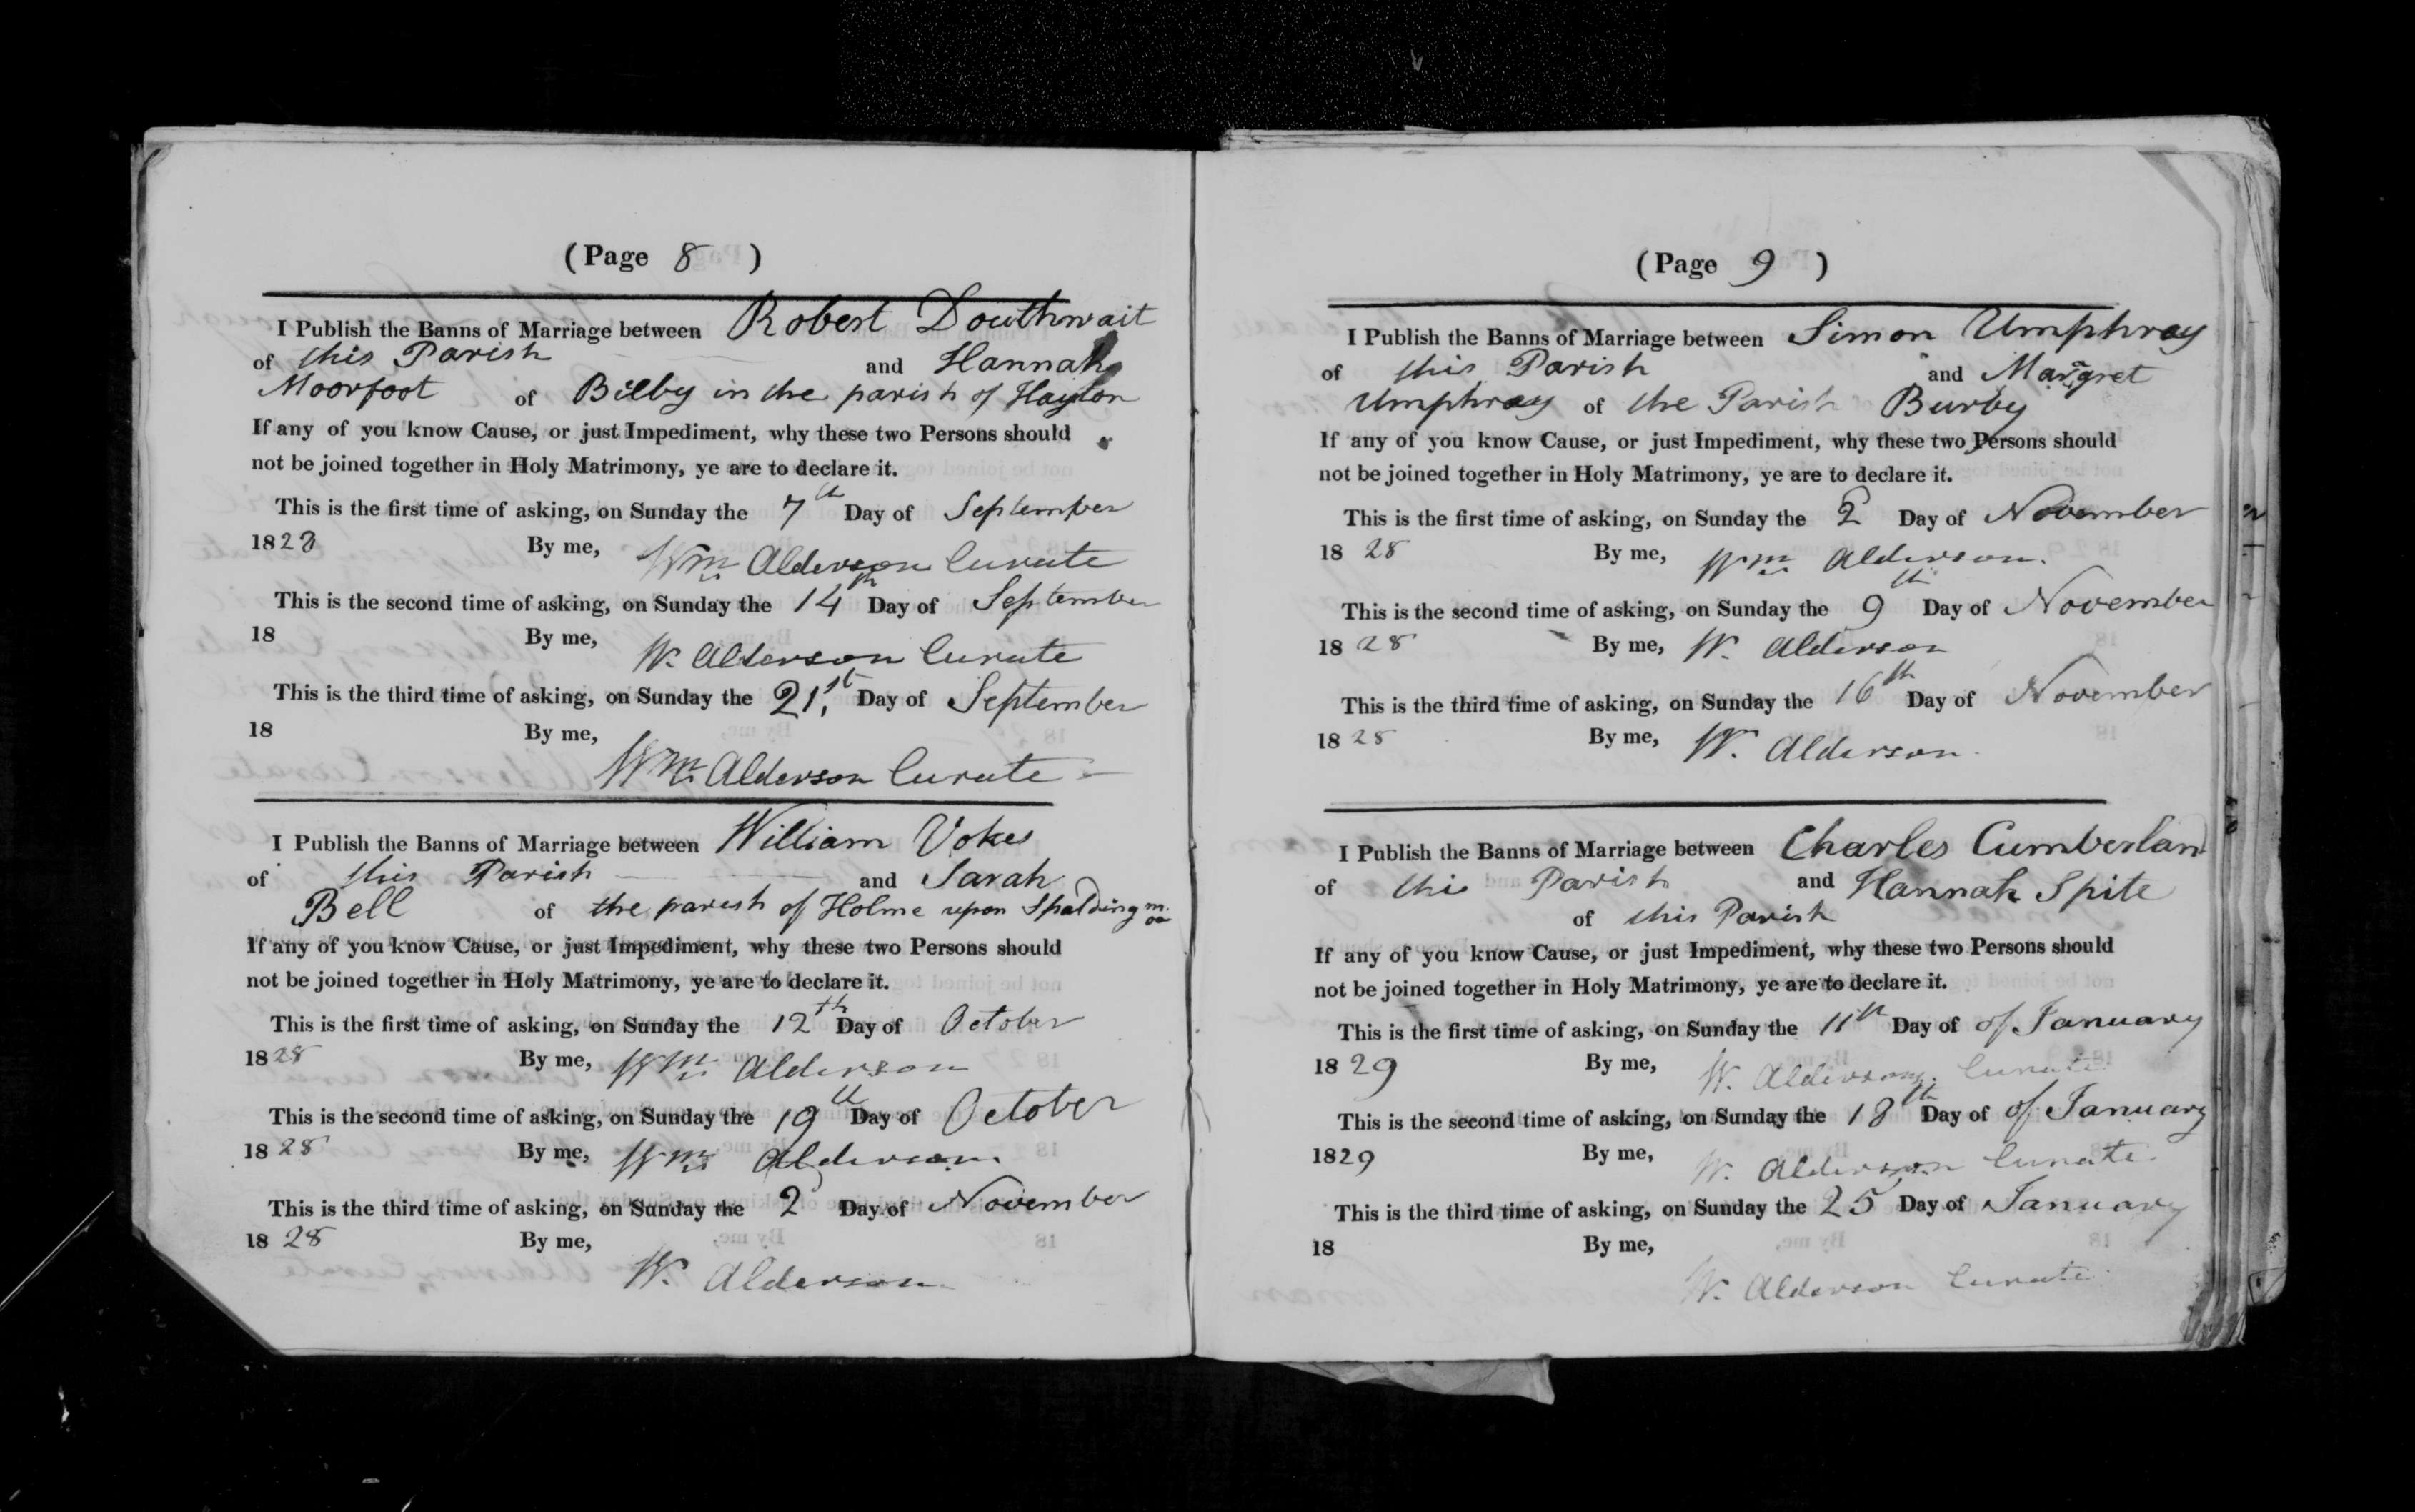 (Page 8)
I Publish the Banns of Marriage between Robert Douthwait
of this Parish and Hannah
Moorfoot of Bielby in the parish of Hayton
If any of you know Cause, or just Impediment, why these two Persons should
not be joined together in Holy Matrimony, ye are to declare it.
This is the first time of asking, on Sunday the 7th Day of September
1828 By me, Wm. Alderson Curate
This is the second time of asking, on Sunday the 14th Day of September
18 By me, W. Alderson Curate
This is the third time of asking, on Sunday the 21st Day of September
18 By me,
Wm. Alderson Curate
I Publish the Banns of Marriage between William Vokes
of this Parish and Sarah
Bell of the parish of Holme upon Spalding moor
If any of you know Cause, or just Impediment, why these two Persons should
not be joined together in Holy Matrimony, ye are to declare it.
This is the first time of asking, on Sunday the 12th Day of October
1828 By me, Wm. Alderson
This is the second time of asking, on Sunday the 19th Day of October
1828 By me, Wm. Alderson
This is the third time of asking, on Sunday the 2 Day of November
1828 By me,
W. Alderson
(Page 9)
I Publish the Banns of Marriage between Simon Umphray
of this Parish and Margret
Umphray of the Parish Burby
If any of you know Cause, or just Impediment, why these two Persons should
not be joined together in Holy Matrimony, ye are to declare it.
This is the first time of asking, on Sunday the 2 Day of November
1828 By me, Wm. Alderson.
This is the second time of asking, on Sunday the 9th Day of November
1828 By me, W. Alderson
This is the third time of asking, on Sunday the 16th Day of November
1828 By me, W. Alderson.
I Publish the Banns of Marriage between Charles Cumberland
of this Parish and Hannah Spite
of this Parish
If any of you know Cause, or just Impediment, why these two Persons should
not be joined together in Holy Matrimony, ye are to declare it.
This is the first time of asking, on Sunday the 11th Day of of January
1829 By me, W. Alderson. Curate
This is the second time of asking, on Sunday the 18th Day of of January
1829 By me, W. Alderson Curate.
This is the third time of asking, on Sunday the 25 Day of January
18 By me,
W. Alderson Curate